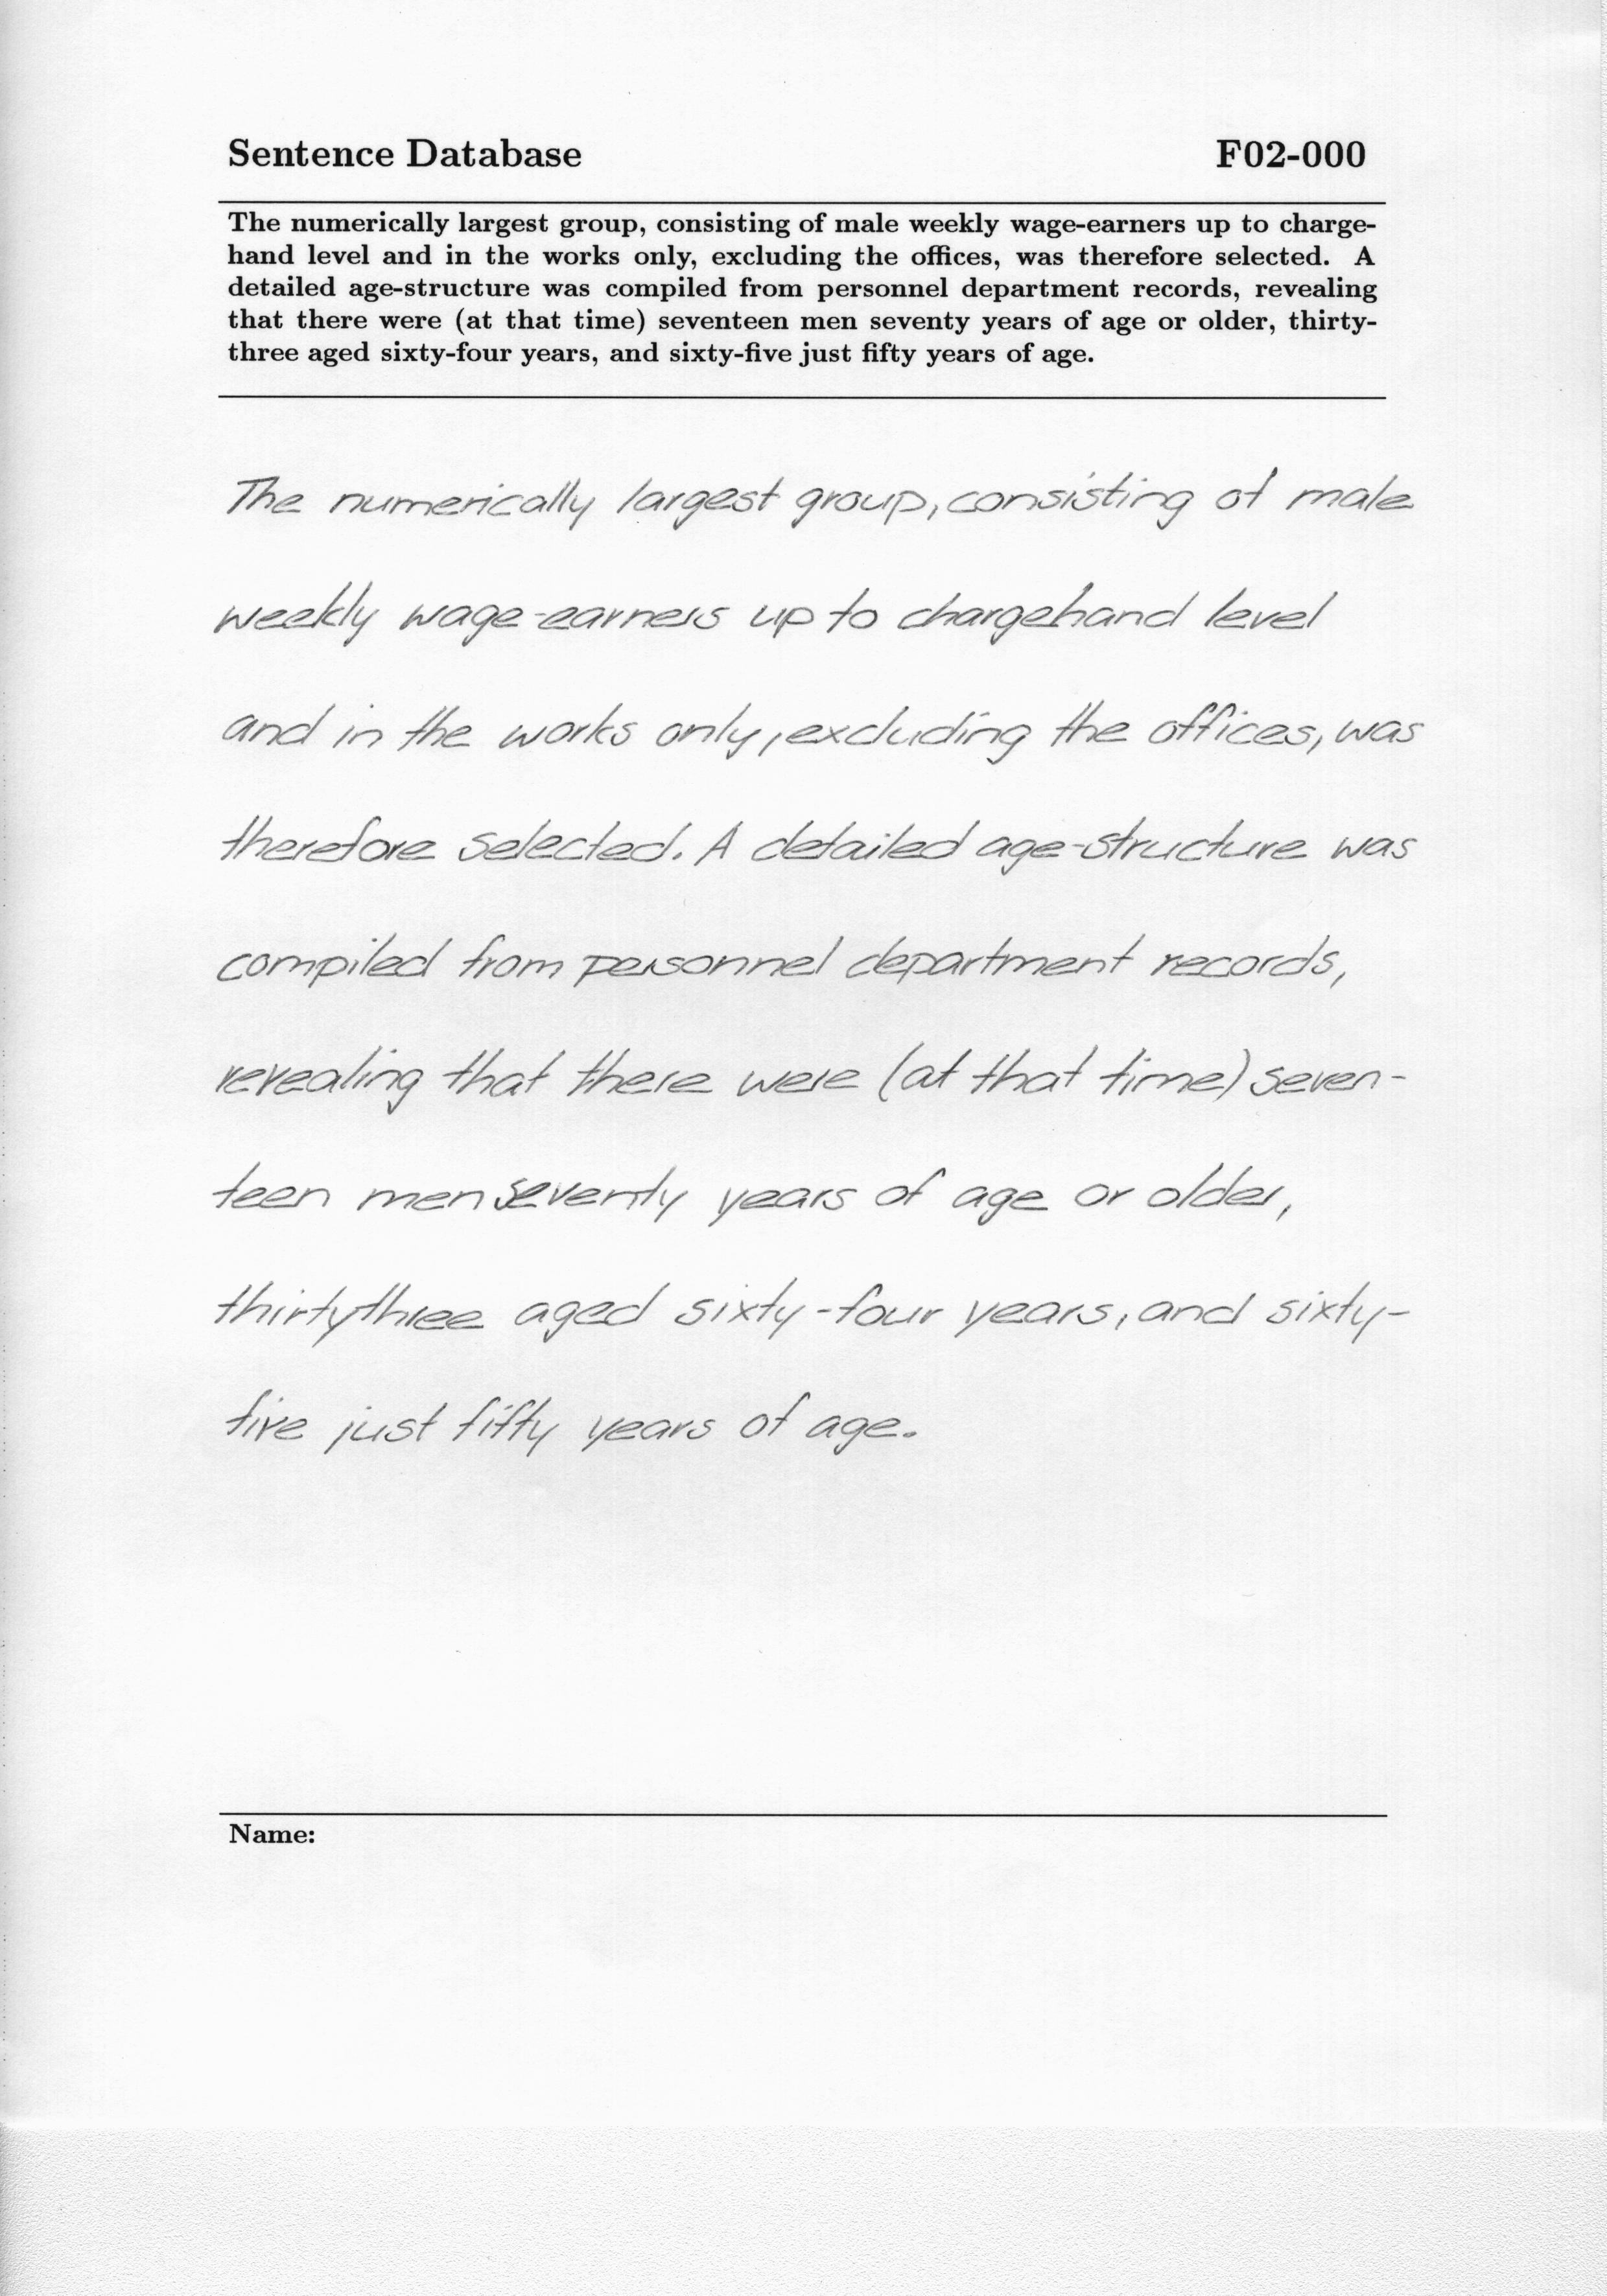 Sentence Database F02-000
The numerically largest group, consisting of male weekly wage-earners up to charge-
hand level and in the works only, excluding the offices, was therefore selected. A
detailed age-structure was compiled from personnel department records, revealing
that there were (at that time) seventeen men seventy years of age or older, thirty-
three aged sixty-four years, and sixty-five just fifty years of age.
The numerically largest group, consisting of male
weekly wage-earners up to chargehand level
and in the works only, excluding the offices, was
therefore selected. A detailed age-structure was
compiled from personnel department records,
revealing that there were (at that time) seven-
teen men seventy years of age or older,
thirtythree aged sixty-four years, and sixty-
five just fifty years of age.
Name: